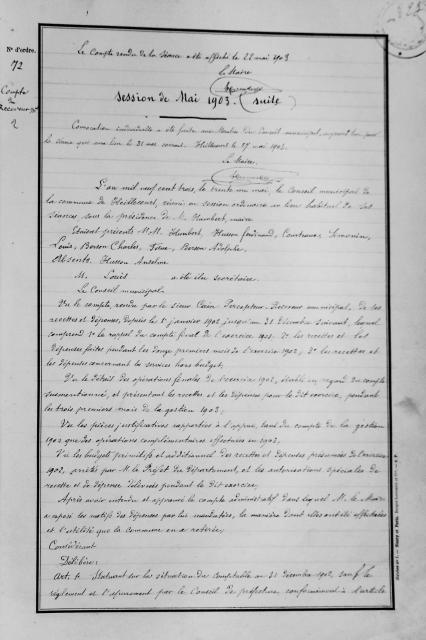 N° d'ordre.
72
Compte
du
Receveur
2
Le Compte rendu de la séance a été affiché le 22 mai 1903
Le Maire
Session de Mai 1903. (suite)
Convocation individuelle a été faite aux Membres du Conseil municipal, aujourd'hui pour
la séance qui aura lieu le 31 mai courant. 27 mai 1903.
Le Maire.
L'an mil neuf cent trois, le trente un mai, le Conseil municipal de
la commune de réuni en session ordinaire au lieu habituel de ses
séances, sous la présidence de M. Humbert, maire
Etaient présents M.M. Humbert, Husson Ferdinand, Courteaux, Simonin,
Louis, Berson Charles, Berson Adolphe.
Absents. Husson Anselme
M. Louis a été élu secrétaire.
Le Conseil municipal.
Vu le compte, rendu par le sieur Percepteur-Receveur municipal, de ses
recettes et dépenses, depuis le 1er janvier 1902 jusqu'au 31 Décembre suivant, lequel
comprend 1° le rappel du compte final de l'exercice 1901. 2° les recettes et les
dépenses faites pendant les douze premiers mois de l'exercice 1902; 3° les recettes et
les dépenses concernant les services hors budget;
Vu le détail des opérations finales de l'exercice 1902, établi en regard du compte
susmentionné, et présentant les recettes et les dépenses pour le dit exercice, pendant
les trois premiers mois de la gestion 1903;
Vu les pièces justificatives rapportées à l'appui, tant du compte de la gestion
1902 que des opérations complémentaires effectuées en 1903.
Vu les budgets primitifs et additionnel des recettes et dépenses présumées de l'exercice
1902, arrêtés par M. le Préfet du Département, et les autorisations spéciales de
recette et de dépense délivrées pendant le dit exercice;
Après avoir entendu et approuvé le compte administratif dans lequel M. le Maire
a exposé les motifs des dépenses par lui mandatées, la manière dont elles ont été effectuées
et l'utilité que la commune en a retirée;
Considérant
Délibère:
Art. 1er Statuant sur la situation du comptable au 31 décembre 1902, sauf le
règlement et l'apurement par le Conseil de préfecture, conformément à l'article